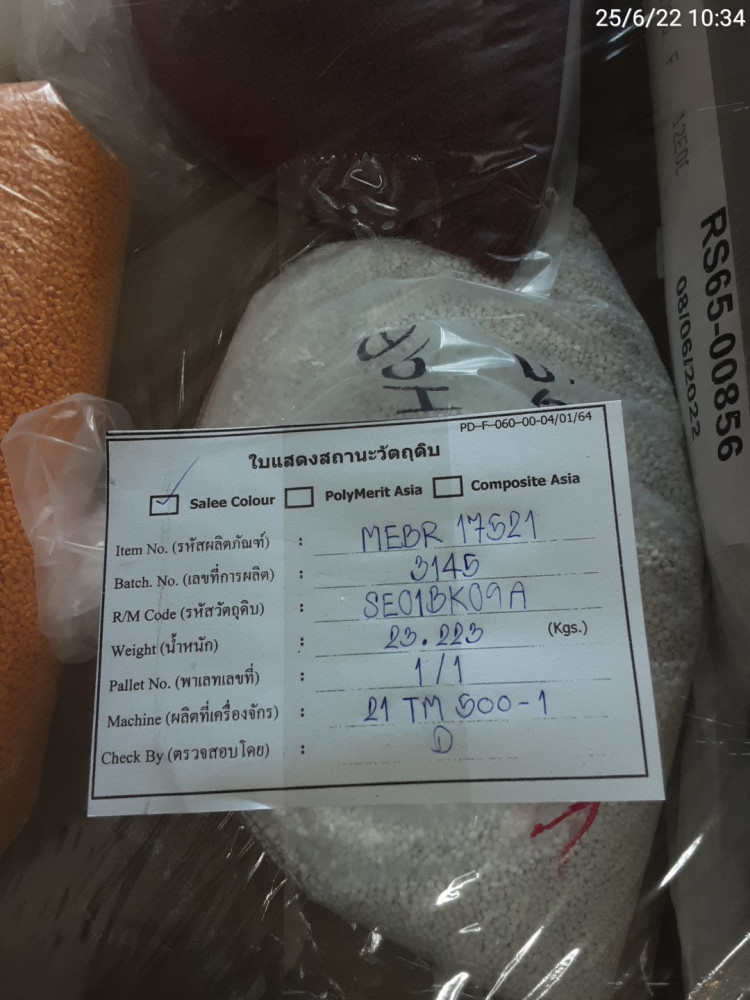 25/6/22 10:34
RS65-00856
08/06/2022
PD-F-060-00-04/01/64
ใบแสดงสถานะวัตถุดิบ
Salee Colour PolyMerit Asia Composite Asia
Item No. (รหัสผลิตภัณฑ์) : MEBR 17521
Batch. No. (เลขที่การผลิต) : 3145
R/M Code (รหัสวัตถุดิบ) : SE01BK09A
Weight (น้ำหนัก) : 23.223 (Kgs.)
Pallet No. (พาเลทเลขที่) : 1/1
Machine (ผลิตที่เครื่องจักร) : 21 TM 500-1
Check By (ตรวจสอบโดย) : D